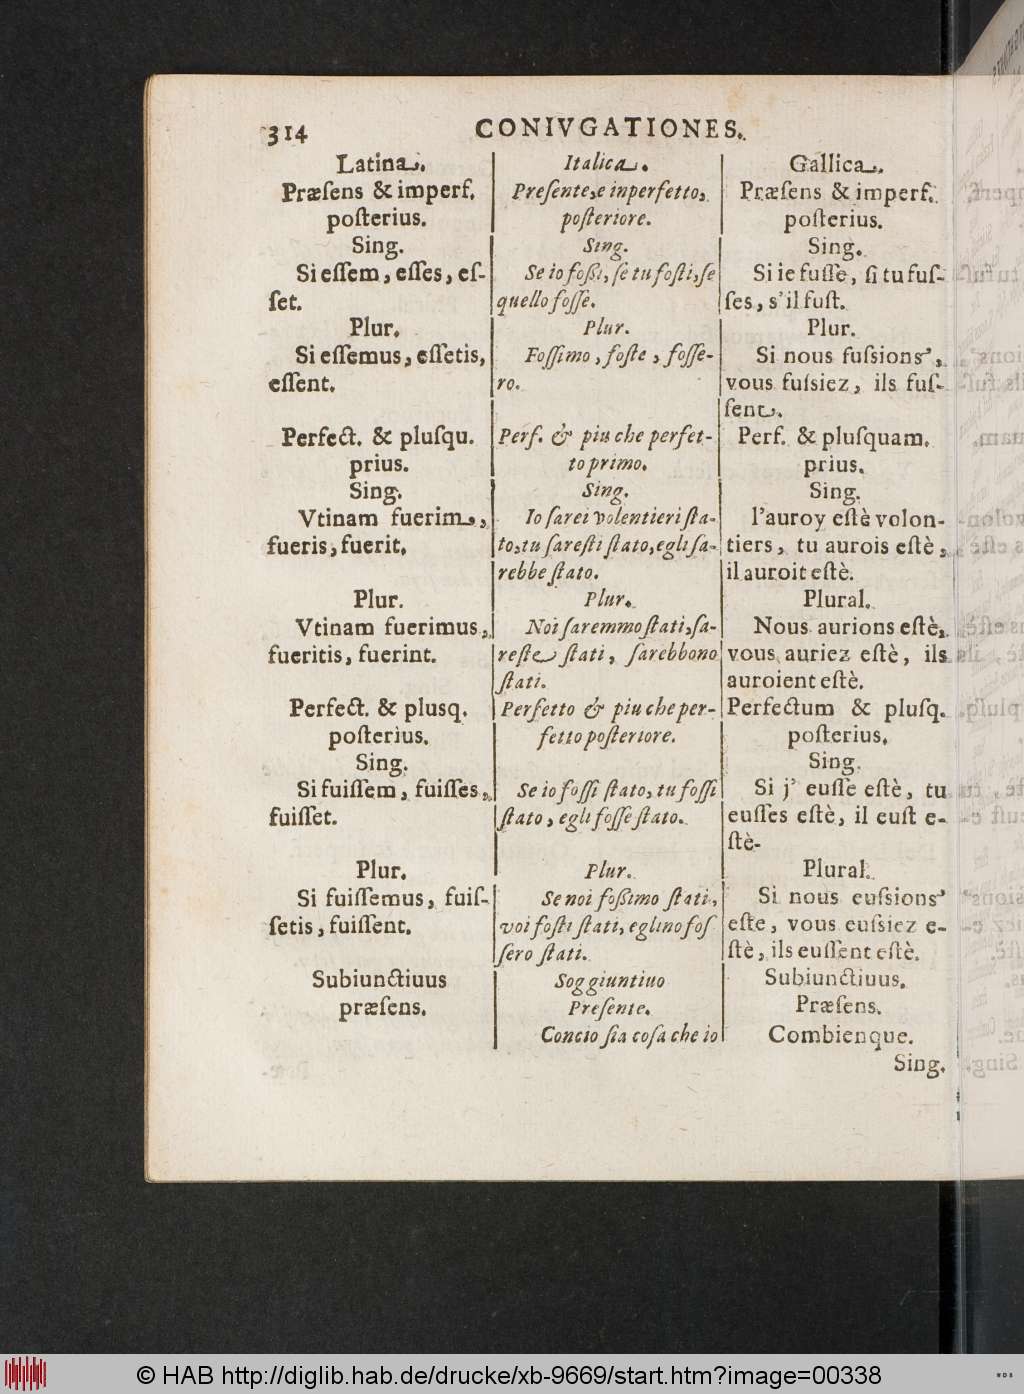 314 CONIVGATIONES.
Latina.
Præſens & imperf.
poſterius.
Sing.
Si eſſem, eſſes, eſ-
ſet.
Plur.
Si eſſemus, eſſetis,
eſſent.
Perfect. & pluſqu.
prius.
Sing.
Vtinam fuerim,
fueris, fuerit.
Plur.
Vtinam fuerimus,
fueritis, fuerint.
Perfect. & plusq.
poſterius.
Sing.
Si fuiſſem, fuiſſes,
fuiſſet.
Plur.
Si fuiſſemus, fuiſ-
ſetis, fuiſſent.
Subiunctiuus
præſens.
Italica.
Preſente, e inperfetto,
poſteriore.
Sing.
Se io foßi, ſe tu foſti, ſe
quello foſſe.
Plur.
Foſſimo, foſte, foſſe-
ro.
Perf. & piu che perfet-
to primo.
Sing.
Io ſarei volentieri ſta-
to, tu ſareſti ſtato, egli ſa-
rebbe ſtato.
Plur.
Noi ſaremmo ſtati, ſa-
reſte ſtati, ſarebbono
ſtati.
Perfetto & piu che per-
fetto poſteriore.
Se io foſſi ſtato, tu foſſi
ſtato, egli foſſe ſtato.
Plur.
Se noi foßimo ſtati,
voi foſti ſtati, eglino foſ
ſero ſtati.
Soggiuntiuo
Preſente.
Concio ſia coſa che io
Gallica.
Præſens & imperf.
poſterius.
Sing.
Si ie fuſſe, ſi tu fuſ-
ſes, s'il fuſt.
Plur.
Si nous fuſsions,
vous fuſsiez, ils fuſ-
ſent.
Perf. & pluſquam.
prius.
Sing.
I'auroy eſtè volon-
tiers, tu aurois eſtè,
il auroit eſtè.
Plural.
Nous aurions eſtè,
vous auriez eſtè, ils
auroient eſtè.
Perfectum & pluſq.
poſterius.
Sing.
Si j' euſſe eſtè, tu
euſſes eſtè, il euſt e-
ſtè-
Plural.
Si nous euſsions
eſte, vous euſsiez e-
ſtè, ils euſſent eſtè.
Subiunctiuus.
Præſens.
Combienque.
Sing.
© HAB http://diglib.hab.de/drucke/xb-9669/start.htm?image=00338